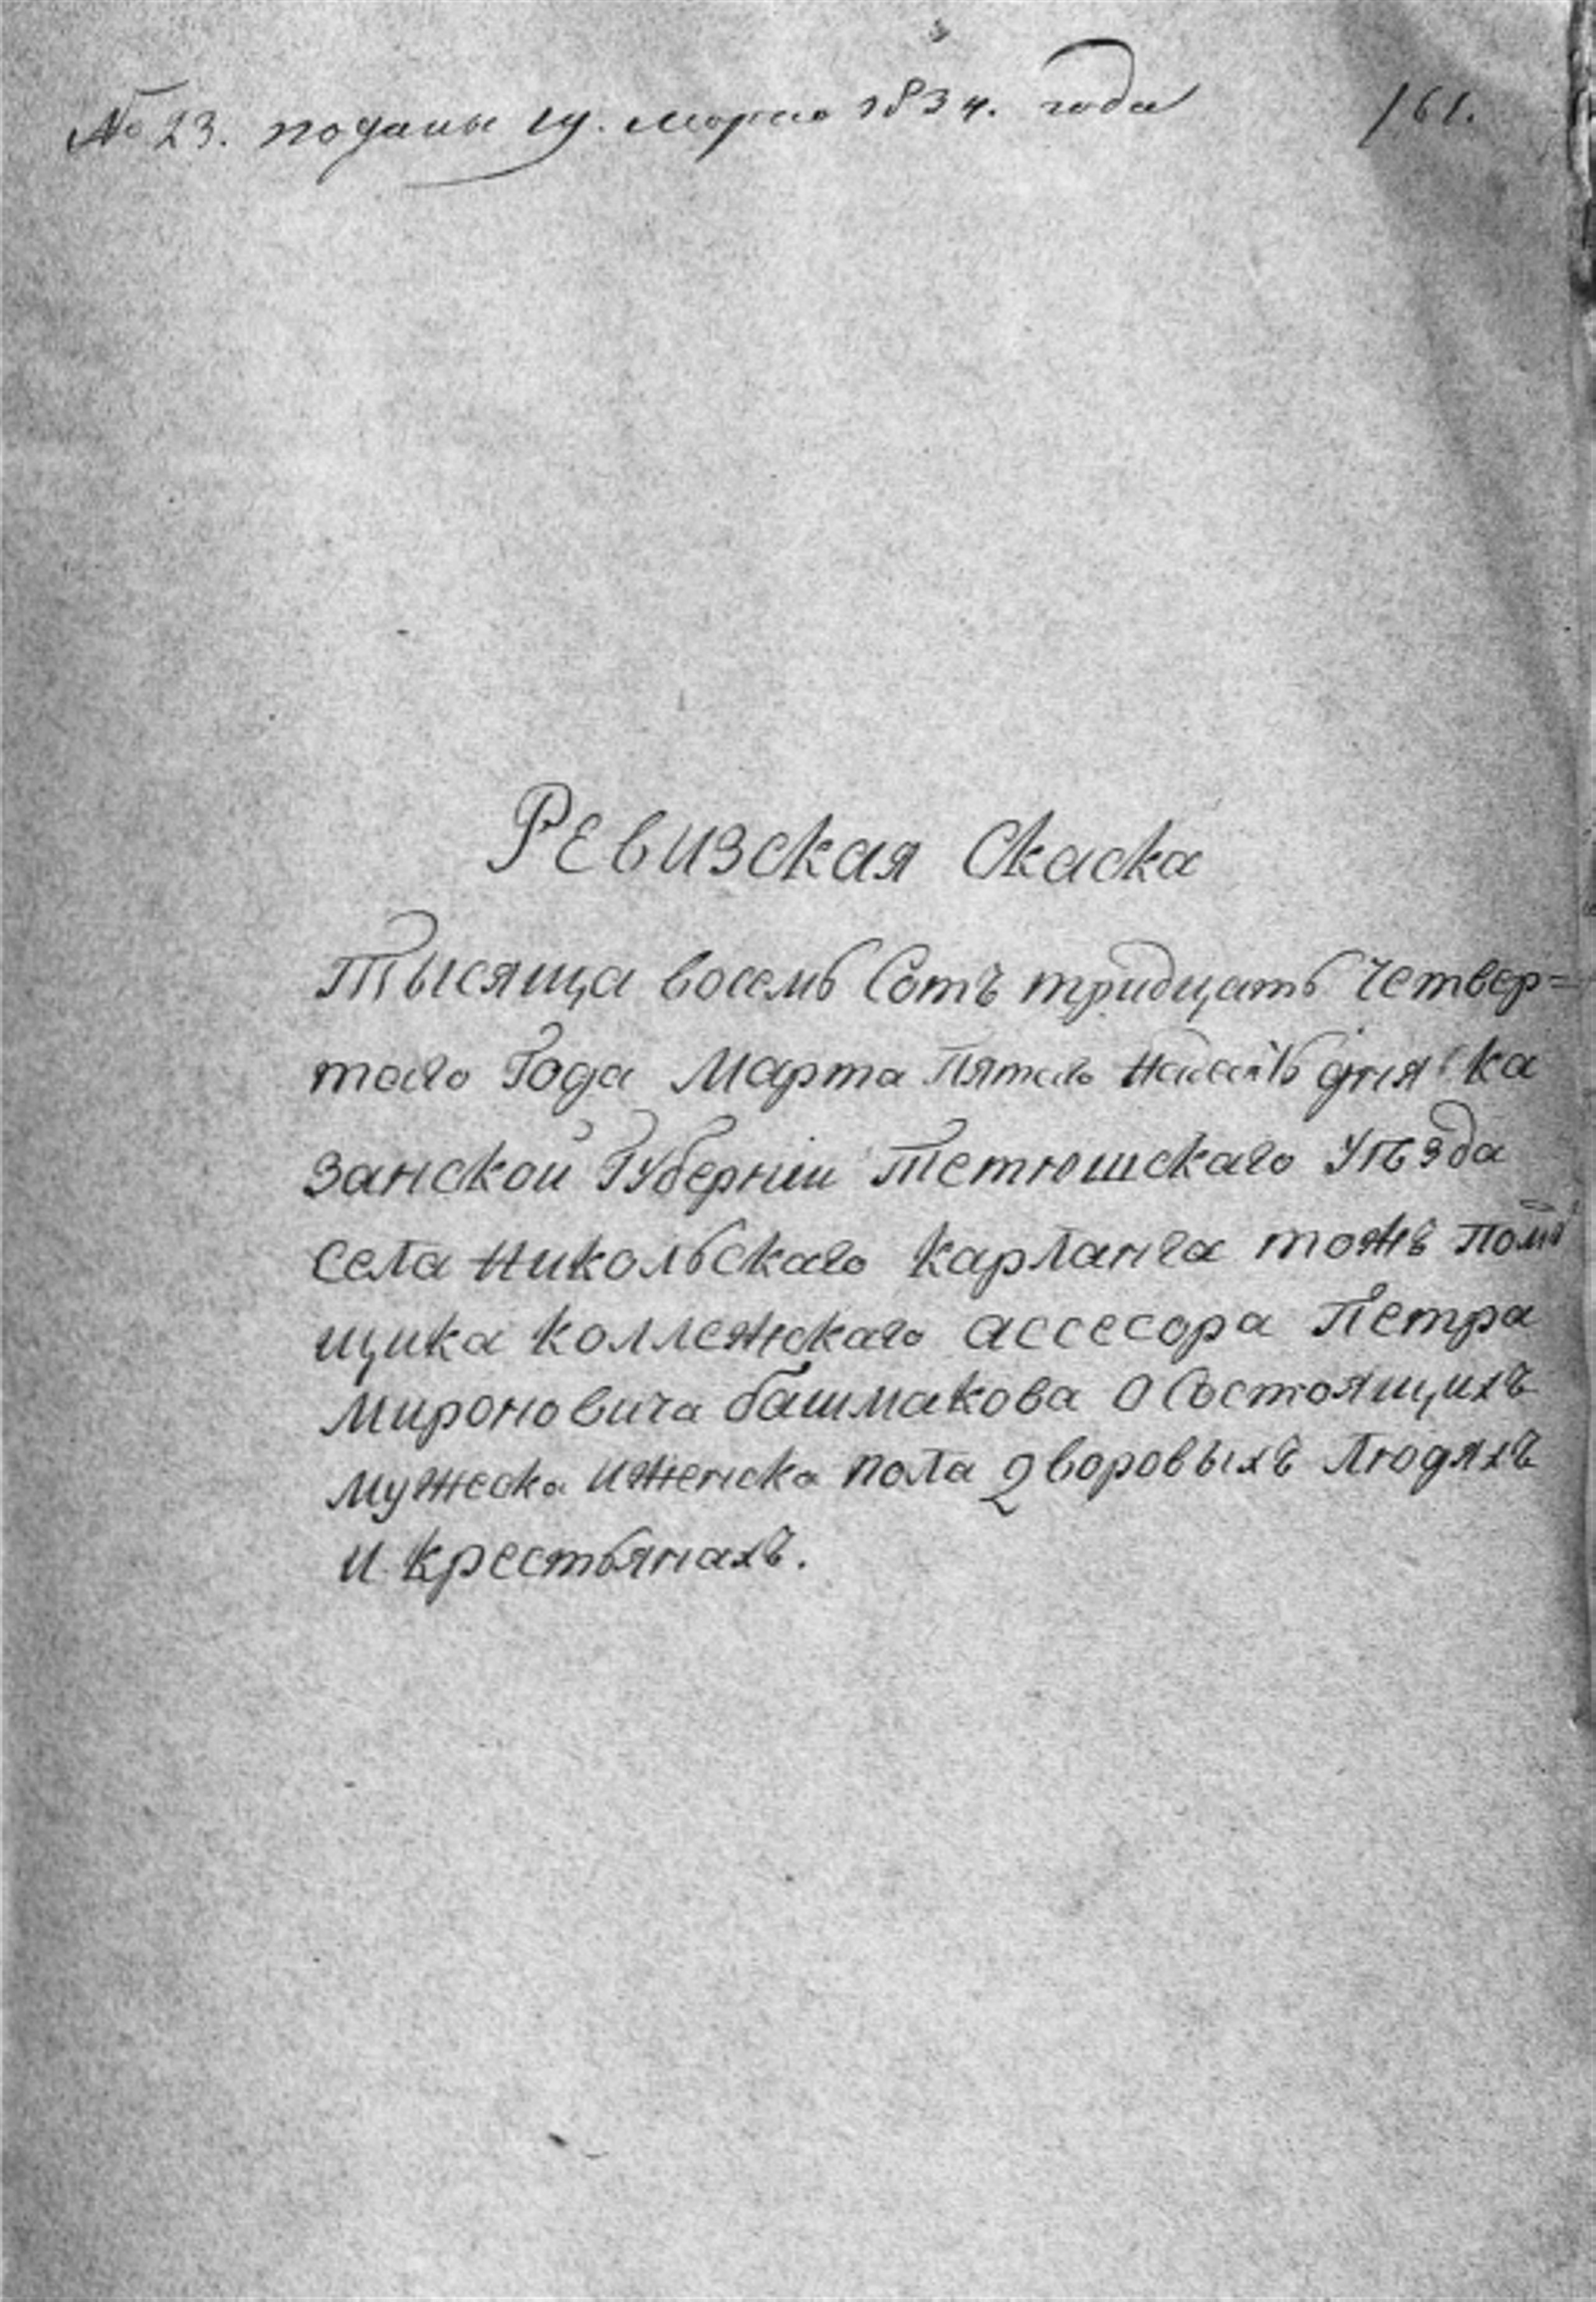 № 23. поданы 19. марта 1834. года 161.
Ревизская Скаска
Тысяща восемь Сотъ тридцать четвер=
таго Года Марта Пятаго дня Ка
занской Губерніи Тетюшскаго Уѣзда
села Никольскаго Карланга тожъ Помѣ
щика коллежскаго ассесора Петра
Мироновича башмакова О Состоящихъ
мужеска ИЖенска пола Дворовыхъ Людяхъ
и крестьянахъ.